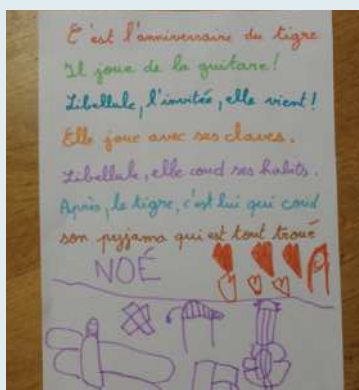 C'est l'anniversaire du tigre
Il joue de la guitare!
Libellule, l'invitée, elle vient!
Elle joue avec ses claves.
Libellule, elle coud ses habits.
Après, le tigre, c'est lui qui coud
son pyjama qui est tout troué
NOÉ